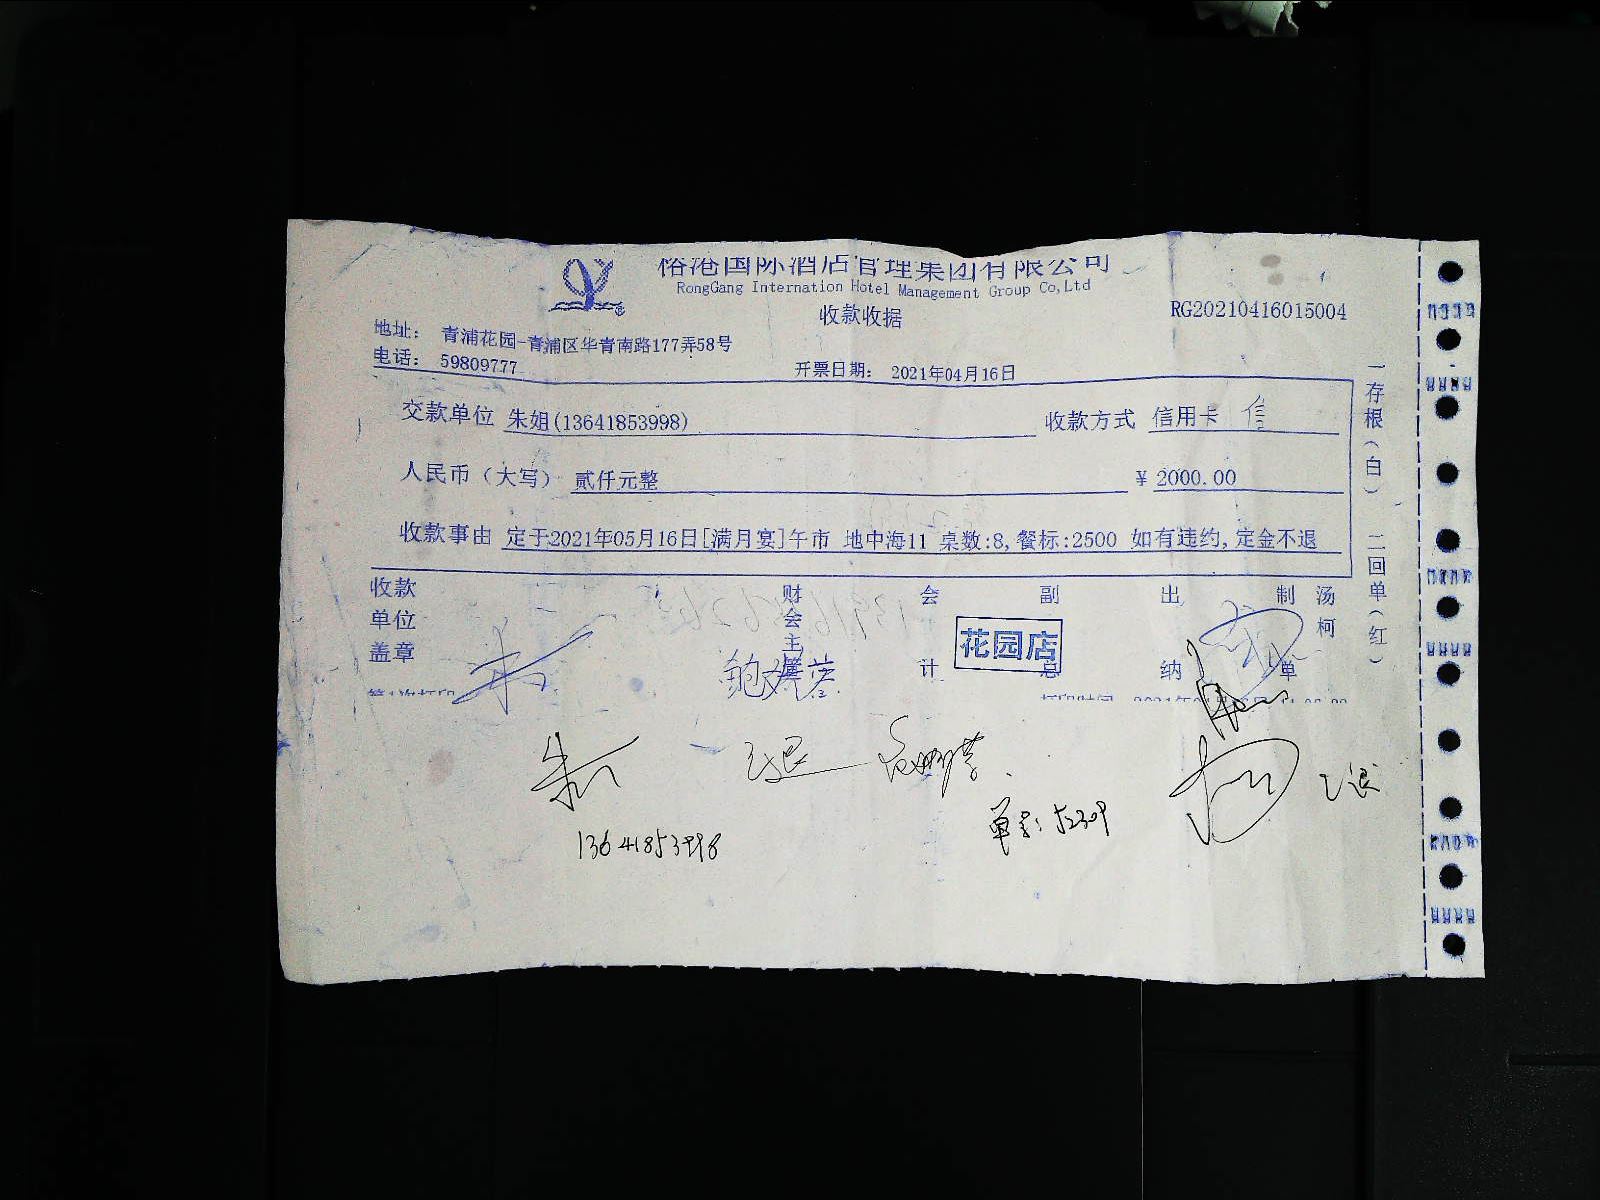 国际酒店管理集团有限公司
RongGang Internation Hotel Management Group Co,Ltd
收款收据
RG20210416015004
地址： 青浦花园-青浦区华青南路177弄58号
电话： 59809777
开票日期： 2021年04月16日
交款单位 朱姐(13641853998)
收款方式 信用卡 信
人民币（大写） 贰仟元整
￥2000.00
收款事由 定于2021年05月16日[满月宴]午市 地中海11 桌数:8,餐标:2500 如有违约,定金不退
一存根（白） 二回单（红）
收款单位盖章
财会主管
会计
副总
出纳
制单
汤柯
花园店
朱
13641853998